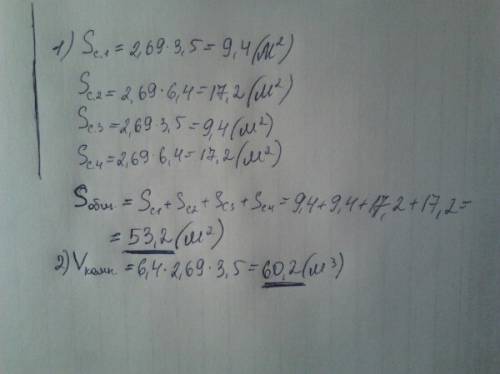 1) Sс.1 = 2,69·3,5 = 9,4 (м²)
Sс2 = 2,69·6,4 = 17,2 (м²)
Sс3 = 2,69·3,5 = 9,4 (м²)
Sс4 = 2,69·6,4 = 17,2 (м²)
Sобщ. = Sс1 + Sс2 + Sс3 + Sс4 = 9,4 + 9,4 + 17,2 + 17,2 =
= 53,2 (м²)
2) Vкомн. = 6,4·2,69·3,5 = 60,2 (м³)